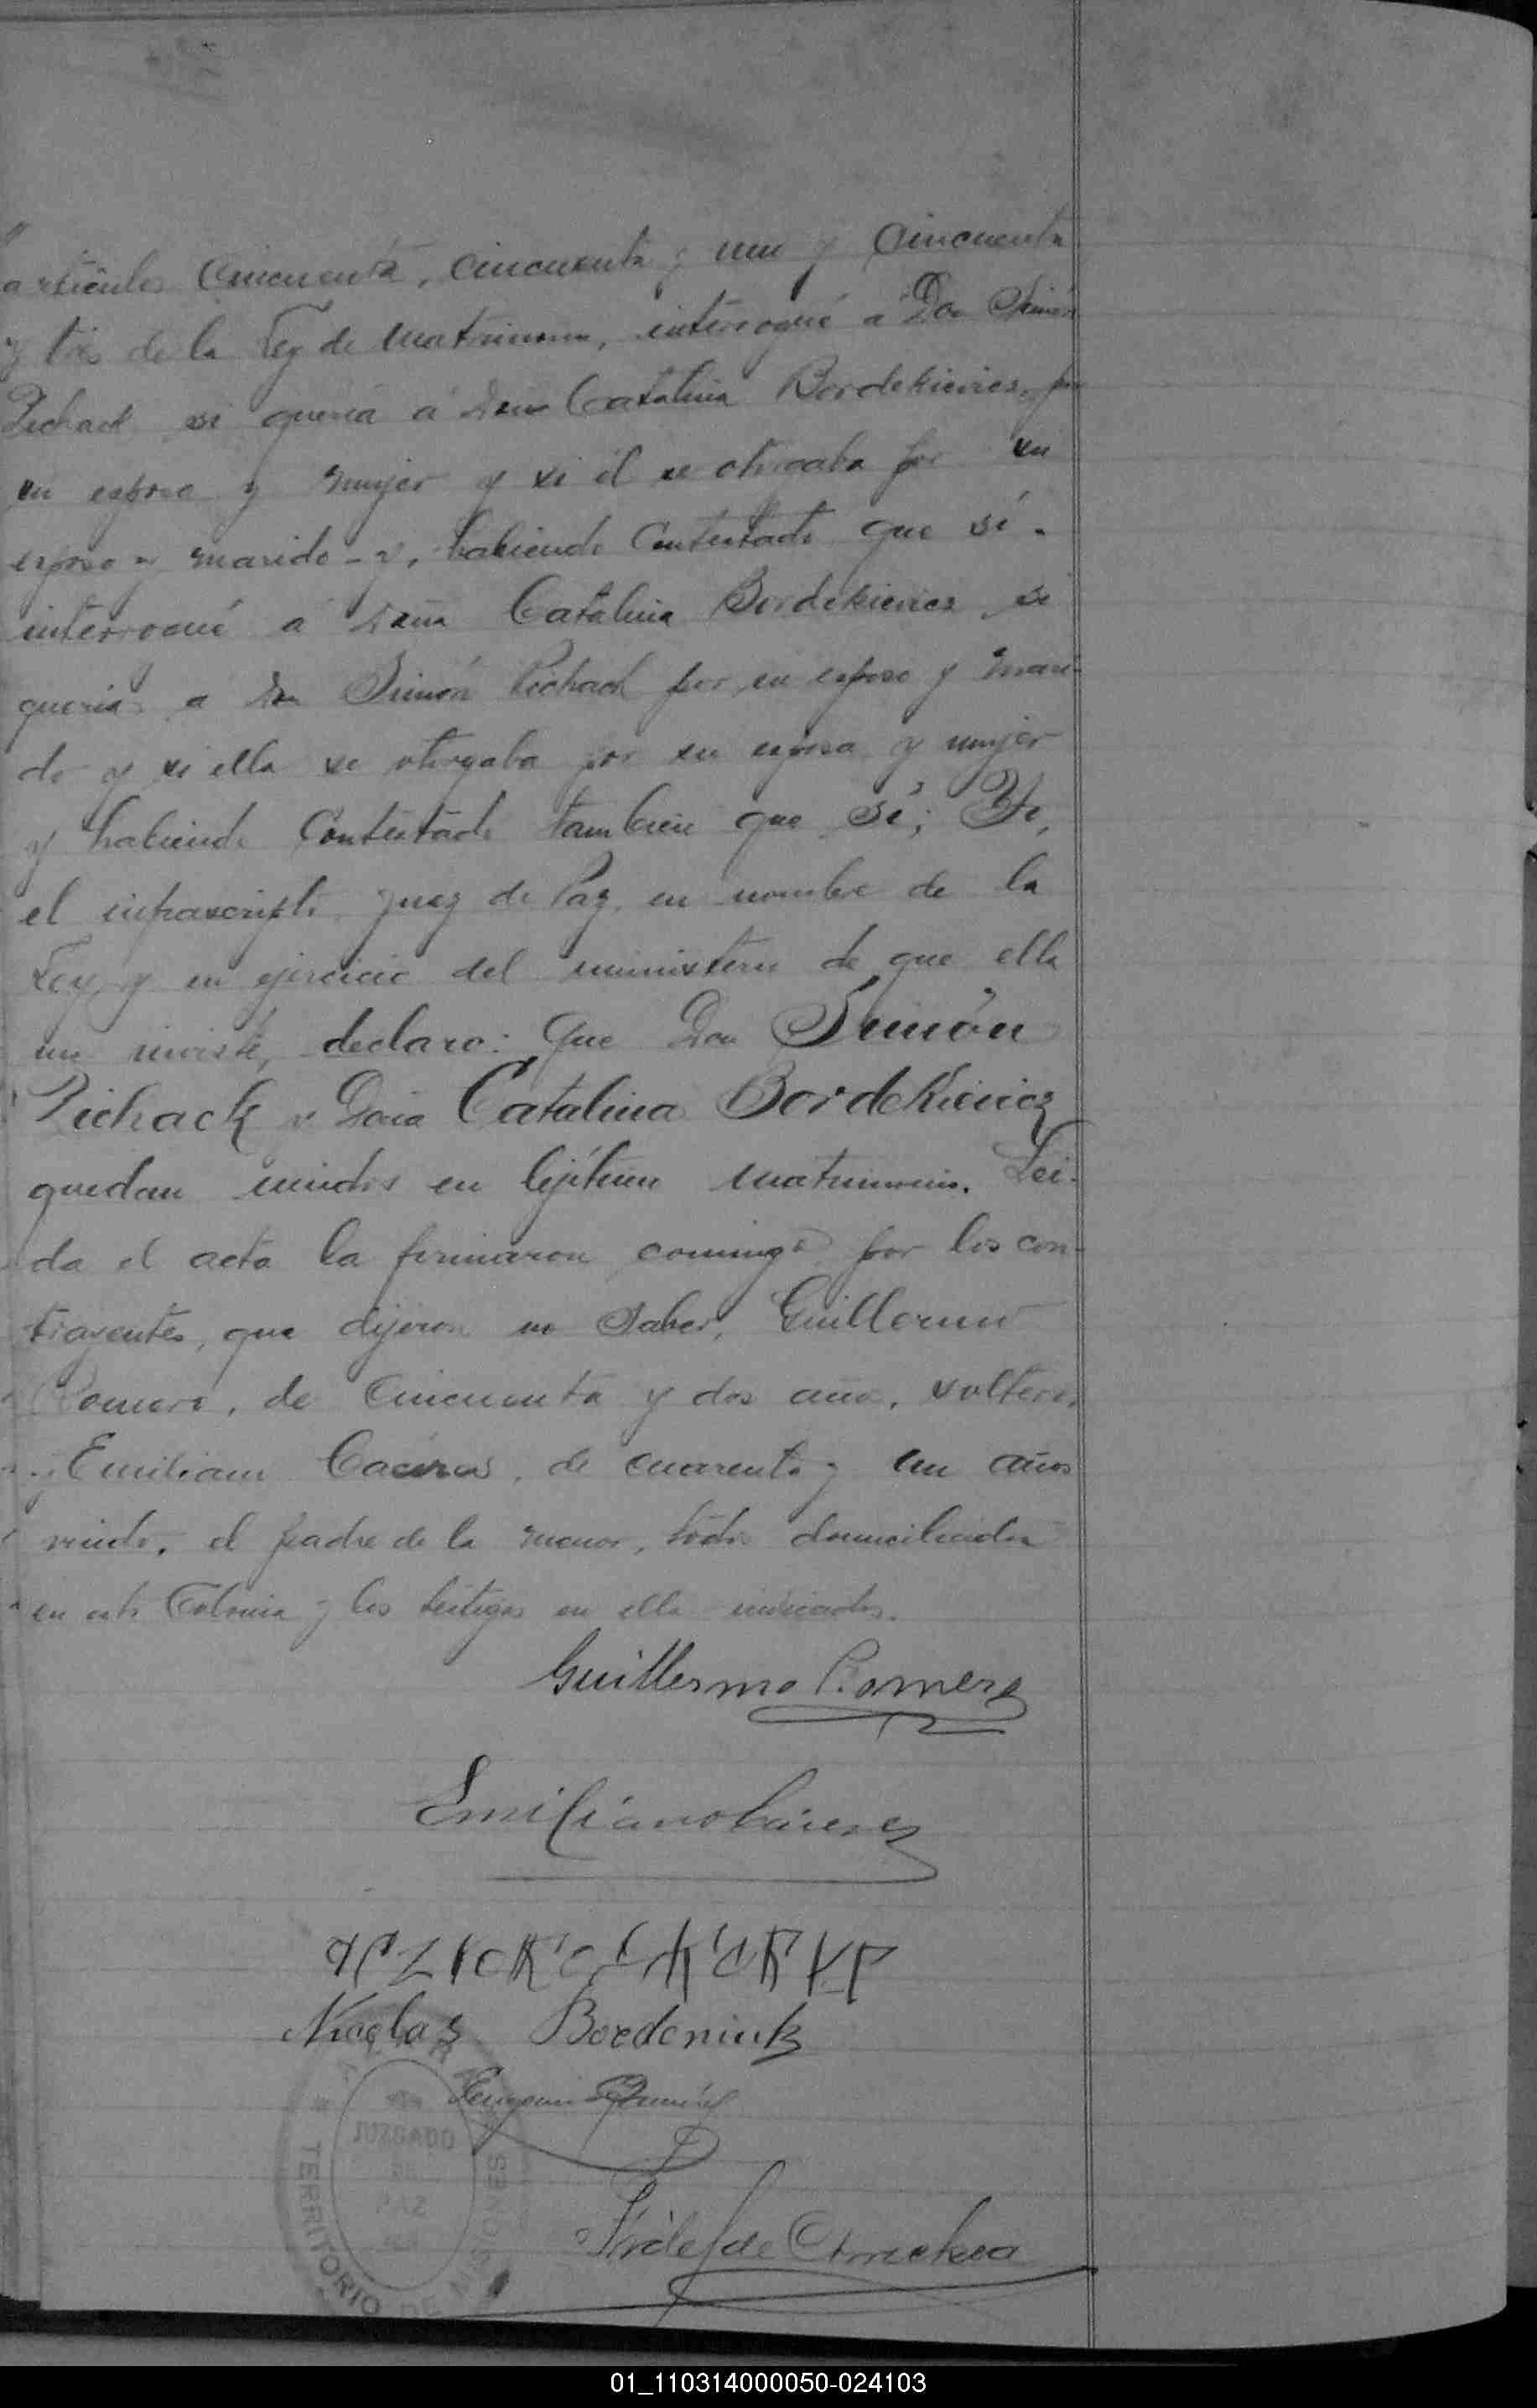 articulos Cincuenta, cincuenta y uno y Cincuenta
y tres de la Ley de Matrimonio, interrogué a Don Simón
Pichack si queria á Doña Catalina Bordekievicz, por
su esposa y mujer y si él se otorgaba por su
esposo y marido - y, habiendo Contestado que sí.
interrogué a Doña Catalina Bordekievicz si
queria a Don Simón Pichack por su esposo y mari-
do y si ella se otorgaba por su esposa y mujer
y habiendo Contestado tambien que Sí; Yo,
el infrascripto Juez de Paz, en nombre de la
Ley, y en ejercicio del ministerio de que ella
me inviste, declaro: Que Don Simón
Pichack y Doña Catalina Bordekievicz
quedan unidos en lejítimo matrimonio. Lei-
da el acta la firmaron conmigo por los con-
trayentes, que dijeron no Saber, Guillermo
Romero, de Cincuenta y dos años, soltero,
y Emiliano Caceres, de cuarenta y un años
viudo, el padre de la menor, todos domiciliados
en esta Colonia y los testigos en ella indicados.
Guillermo Romero
Emiliano Caceres
Nicolas Bordeniuk
JUZGADO
DE
PAZ
TERRITORIO DE MISIONES
01_110314000050-024103